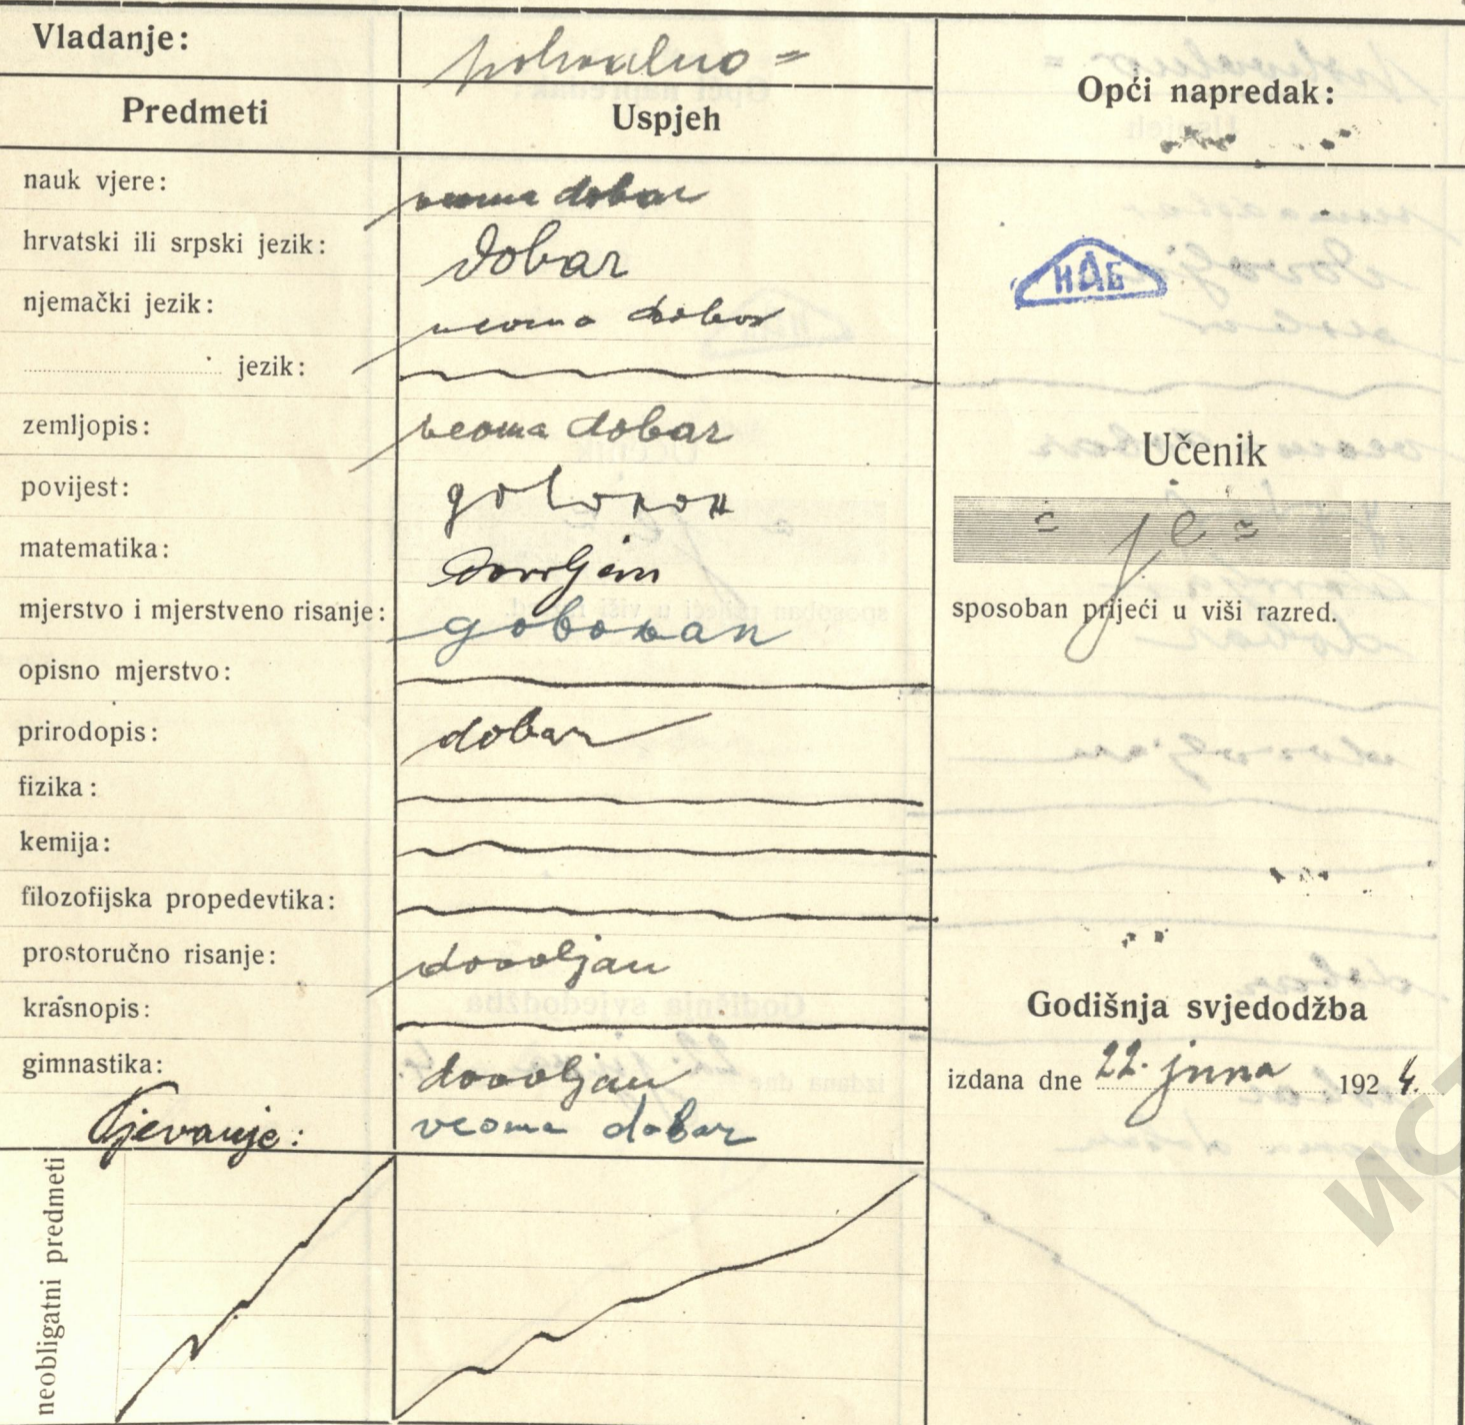 Vladanje: pohvalno =
Predmeti Uspjeh Opći napredak:
nauk vjere: veoma dobar
hrvatski ili srpski jezik: dobar
njemački jezik: veoma dobar
jezik:
zemljopis: veoma dobar
povijest:
matematika: dovoljan
mjerstvo i mjerstveno risanje:
opisno mjerstvo:
prirodopis: dobar
fizika:
kemija:
filozofijska propedevtika:
prostoručno risanje: dovoljan
krasnopis:
gimnastika: dovoljan
Pjevanje: veoma dobar
neobligatni predmeti
Učenik
= je =
sposoban prijeći u viši razred.
Godišnja svjedodžba
izdana dne 22. juna 1924.